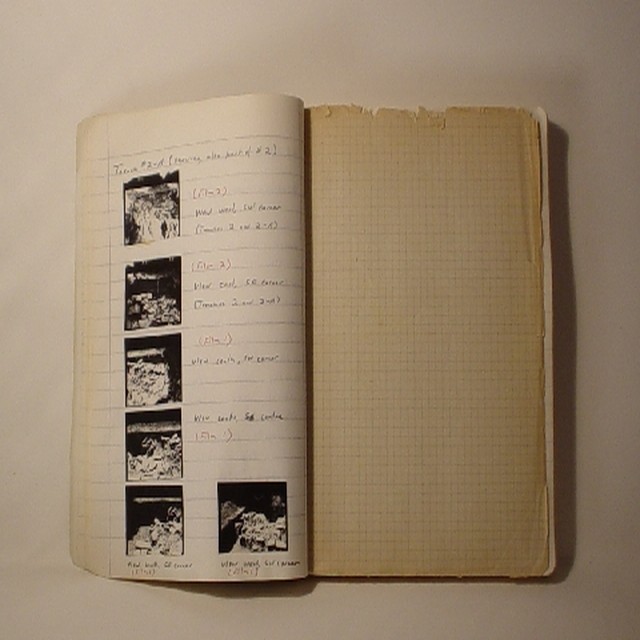 Trench #2-A (showing also part of #2)
(Film 2)
View west, SW corner
(Trenches 2 and 2-A)
(Film 2)
View east, SE corner
(Trenches 2 and 2-A)
(Film 1)
View south, SW corner
View south, SE corner
(Film 1)
View south, SE corner
(Film 1)
View west, SW corner
(Film 1)